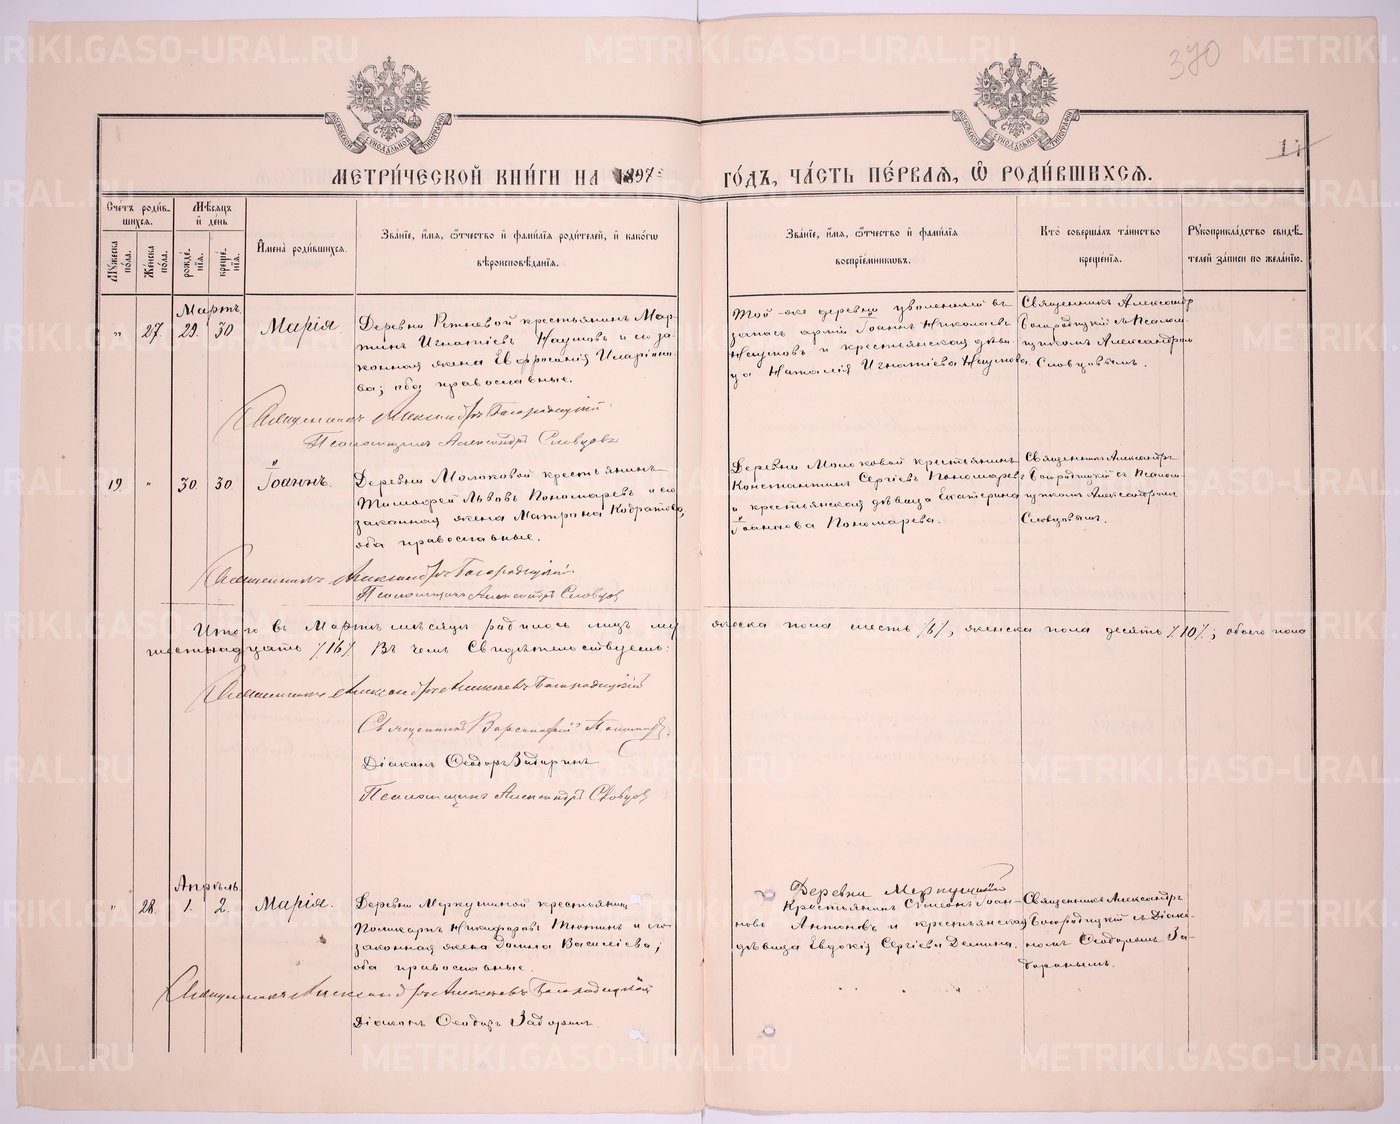 370
11
МЕТРИ́ЧЕСКОЙ КНИ́ГИ НА 1897 ГО́ДЪ, ЧА́СТЬ ПЕ́РВАЯ, Ѡ РОДИ́ВШИХСЯ.
Сче́тъ роди́в-
шихся.
Му́жеска по́ла.
Же́нска по́ла.
Мѣ́сяцъ и́ де́нь
рожде́нія.
креще́нія.
Имена̀ роди́вшихся.
Зва́ніе, и́мя, о́тчество и́ фами́лія роди́телей, и́ како́гѡ
вѣроисповѣ́данія.
Зва́ніе, и́мя, о́тчество и́ фами́лія
воспріе́мниковъ.
Кто̀ соверша́лъ та́инство
креще́нія.
Рукоприкла́дство свидѣ́-
телей за́писи по жела́нію.
Мартъ
" 27. 29. 30 Марія.
Деревни Режневой крестьянинъ Мар-
тинъ Игнатіевъ Наумовъ и его за-
конная жена Евфросинія Иларіоно-
ва; оба православные.
Той-же деревни уволенный въ
запасъ арміи Іоаннъ Николаевъ
Наумовъ и крестьянская дѣви-
ца Наталія Игнатіева Наумова.
Священникъ Александръ
Богородицкій съ Псалом-
щикомъ Александромъ
Словцовымъ.
Священникъ Александръ Богородицкій
Псаломщикъ Александръ Словцовъ
19. " 30. 30. Іоаннъ.
Деревни Молоковой крестьянинъ
Тимофей Львовъ Пономаревъ и его
законная жена Матрона Кодратова,
оба православные.
Деревни Молоковой крестьянинъ
Константинъ Сергіевъ Пономаревъ
и крестьянская дѣвица Екатерина
Іоаннова Пономарева.
Священникъ Александръ
Богородицкій съ Псалом-
щикомъ Александромъ
Словцовымъ.
Священникъ Александръ Богородицкій
Псаломщикъ Александръ Словцовъ
Итого въ Мартѣ мѣсяцѣ родилось лицъ му жеска пола шесть /6/, женска пола десять /10/; обоего пола
шестнадцать /16/ Въ чемъ Свидѣтельствуемъ:
Священникъ Александръ Алексѣевъ Богородицкій
Священникъ
Діаконъ Ѳеодоръ Задоринъ
Псаломщикъ Александръ Словцовъ
Апрѣль.
" 28. 1. 2. Марія.
Деревни Меркушиной крестьянинъ
Поликарпъ Никифоровъ Тютинъ и его
законная жена Домна Василіева;
оба православные.
Деревни Меркушиной
Крестьянинъ Стефанъ Іоан-
новъ Антоновъ и крестьянская
дѣвица Евдокія Сергіева Демина.
Священникъ Александръ
Богородицкій съ Діако-
номъ Ѳеодоромъ За-
доринымъ.
Священникъ Александръ Алексѣевъ Богородицкій
Діаконъ Ѳеодоръ Задоринъ.
METRIKI.GASO-URAL.RU